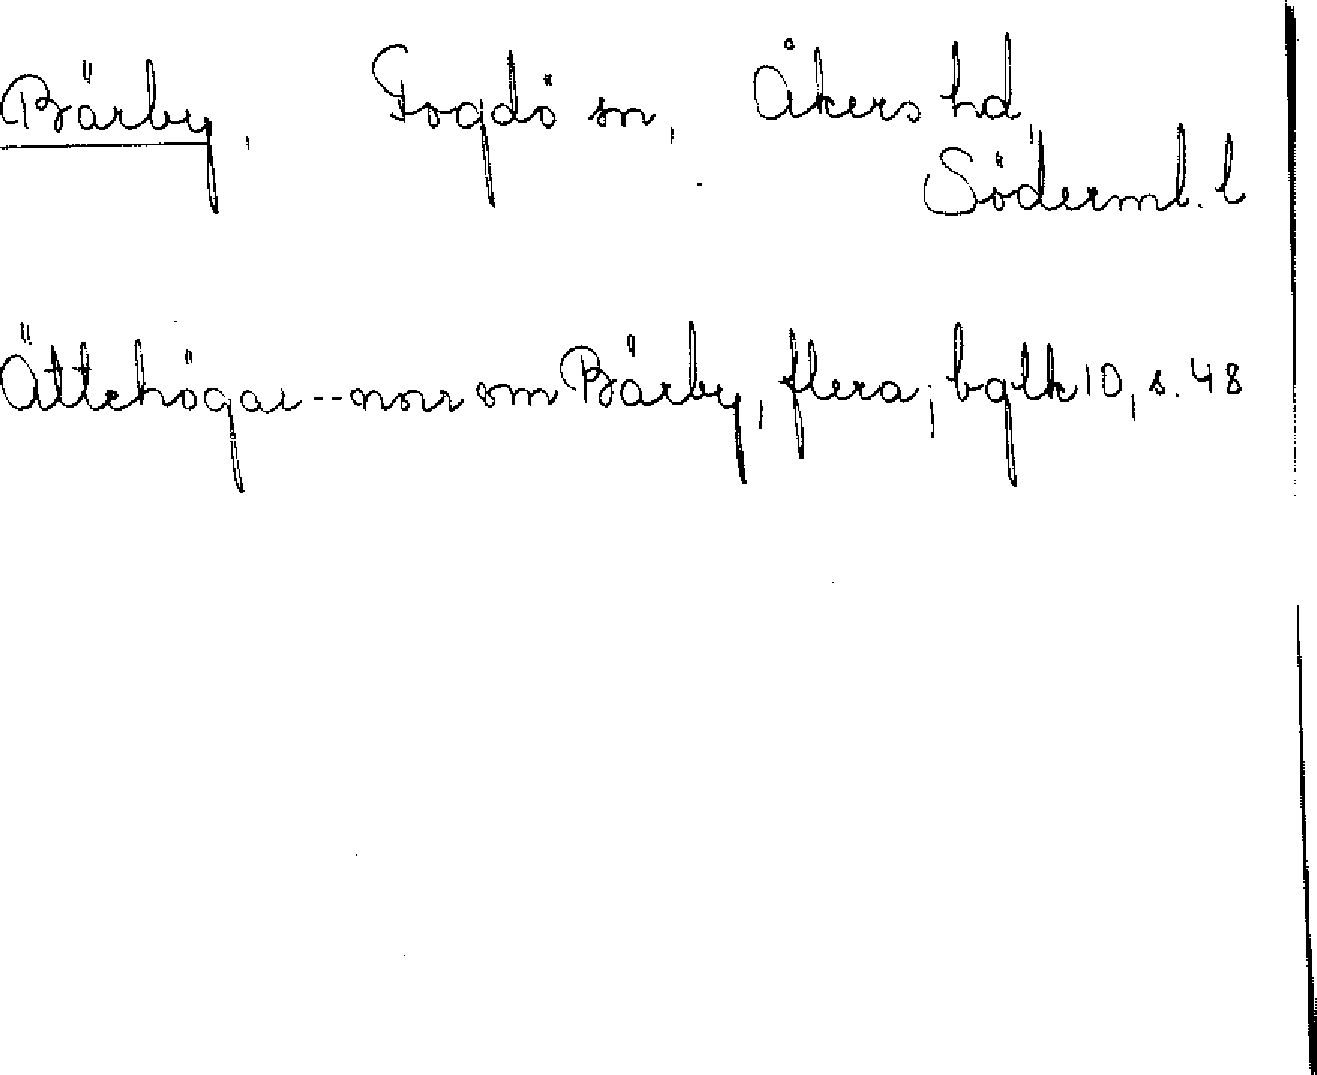 Bärby, Fogdö sn, Åkers hd,
Söderml. l
Ättehögar -- norr om Bärby, flera; bglk 10, s. 48